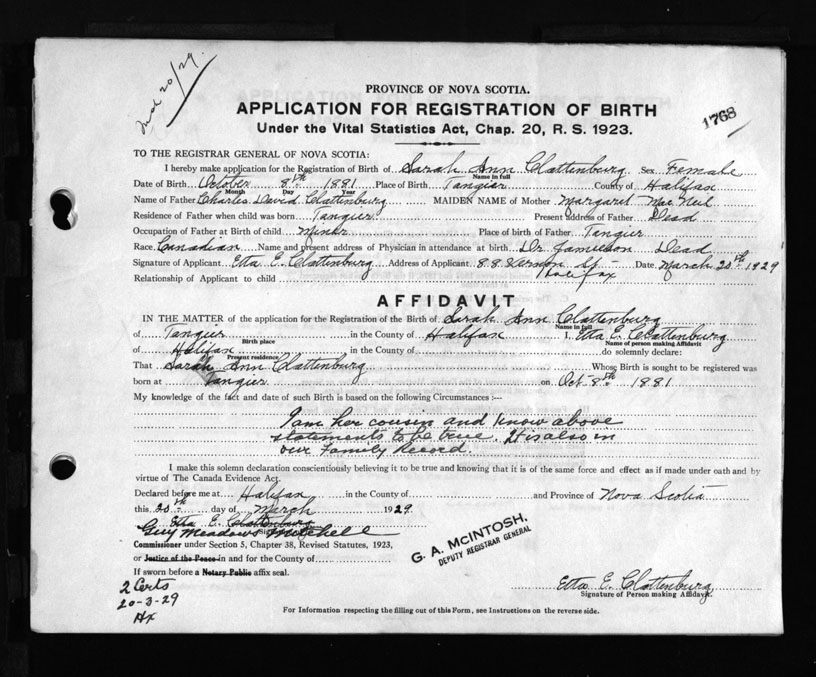 Mch 20/29.
PROVINCE OF NOVA SCOTIA.
APPLICATION FOR REGISTRATION OF BIRTH
1768
Under the Vital Statistics Act, Chap. 20, R. S. 1923.
TO THE REGISTRAR GENERAL OF NOVA SCOTIA:
I hereby make application for the Registration of Birth of Sarah Ann Clattenburg Sex Female
Name in full
Date of Birth October 8th 1881 Place of Birth Tangier County of Halifax
Month Day Year
Name of Father Charles David Clattenburg MAIDEN NAME of Mother Margaret Mac Neil
Residence of Father when child was born Tangier Present address of Father Dead
Occupation of Father at Birth of child Miner Place of birth of Father Tangier
Race Canadian Name and present address of Physician in attendance at birth Dr Jamieson Dead
Signature of Applicant Etta E. Clattenburg Address of Applicant 88 St. Halifax Date March 20th 1929
Relationship of Applicant to child
AFFIDAVIT
IN THE MATTER of the application for the Registration of the Birth of Sarah Ann Clattenburg
Name in full
of Tangier in the County of Halifax I, Etta E. Clattenburg
Birth place Name of person making Affidavit
of Halifax in the County of do solemnly declare:
Present residence
That Sarah Ann Clattenburg Whose Birth is sought to be registered was
born at Tangier on Oct 8th 1881
My knowledge of the fact and date of such Birth is based on the following Circumstances :—
I am her cousin and know above
statements to be true. It is also in
our Family Record.
I make this solemn declaration conscientiously believing it to be true and knowing that it is of the same force and effect as if made under oath and by
virtue of The Canada Evidence Act.
Declared before me at Halifax in the County of and Province of Nova Scotia
this 20th day of March 1929
Etta E. Clattenburg
Guy Meadows Mitchell
Commissioner under Section 5, Chapter 38, Revised Statutes, 1923,
or Justice of the Peace in and for the County of
If sworn before a Notary Public affix seal.
G. A. McINTOSH,
DEPUTY REGISTRAR GENERAL
2 Certs
20-3-29
Hx
Etta E. Clattenburg
Signature of Person making Affidavit.
For Information respecting the filling out of this Form, see Instructions on the reverse side.